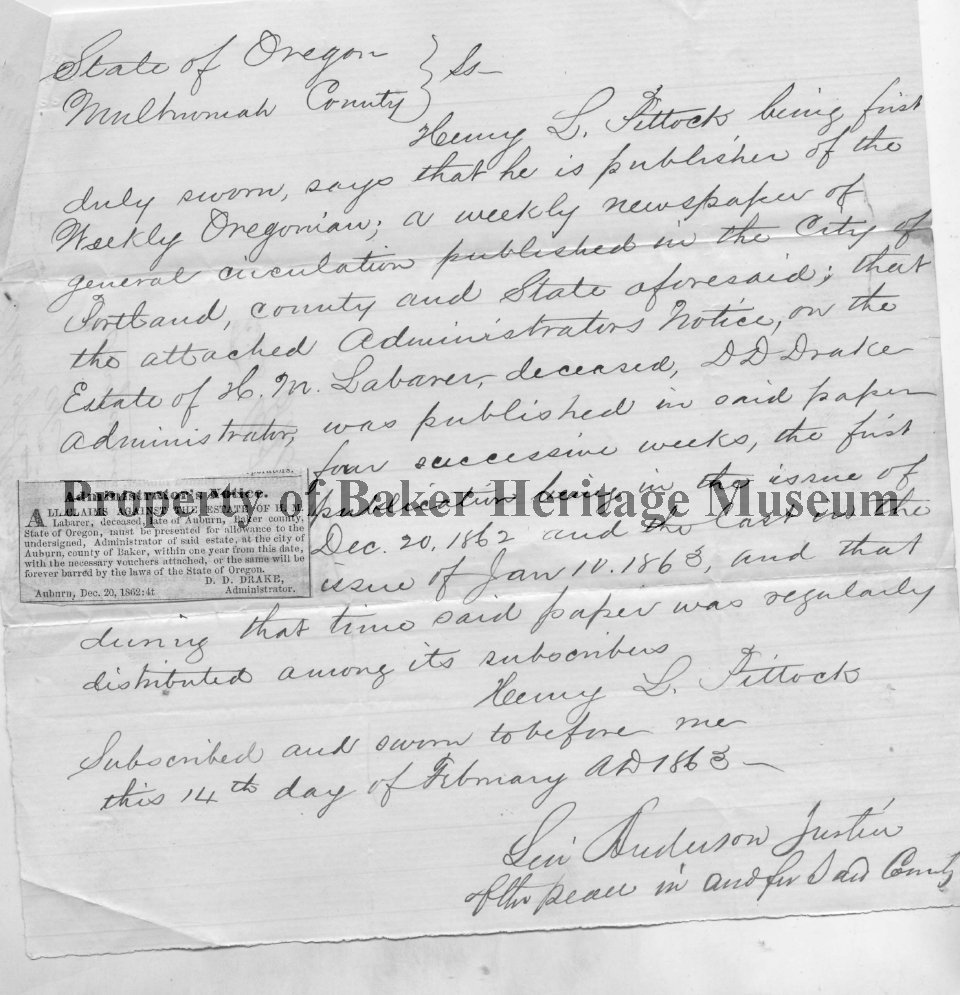 State of Oregon } Ss
Multnomah County }
Henry L. Pittock being first
duly sworn, says that he is publisher of the
Weekly Oregonian; a weekly newspaper of
general circulation published in the City of
Portland, county and State aforesaid; that
the attached Administrators Notice, on the
Estate of H. M. Labarer, deceased, D D Drake
administrator, was published in said paper
four successive weeks, the first
publication being in the issue of
Dec. 20, 1862 and the last in the
issue of Jan 10. 1863, and that
Administrator's Notice.
ALL CLAIMS AGAINST THE ESTATE OF H. M.
Labarer, deceased, late of Auburn, Baker county,
State of Oregon, must be presented for allowance to the
undersigned, Administrator of said estate, at the city of
Auburn, county of Baker, within one year from this date,
with the necessary vouchers attached, or the same will be
forever barred by the laws of the State of Oregon.
D. D. DRAKE,
Auburn, Dec. 20, 1862:4t Administrator.
Property of Baker Heritage Museum
during that time said paper was regularly
distributed among its subscribers
Henry L. Pittock
Subscribed and sworn to before me
this 14th day of February AD 1863
Levi Anderson Justice
of the peace in and for Said County